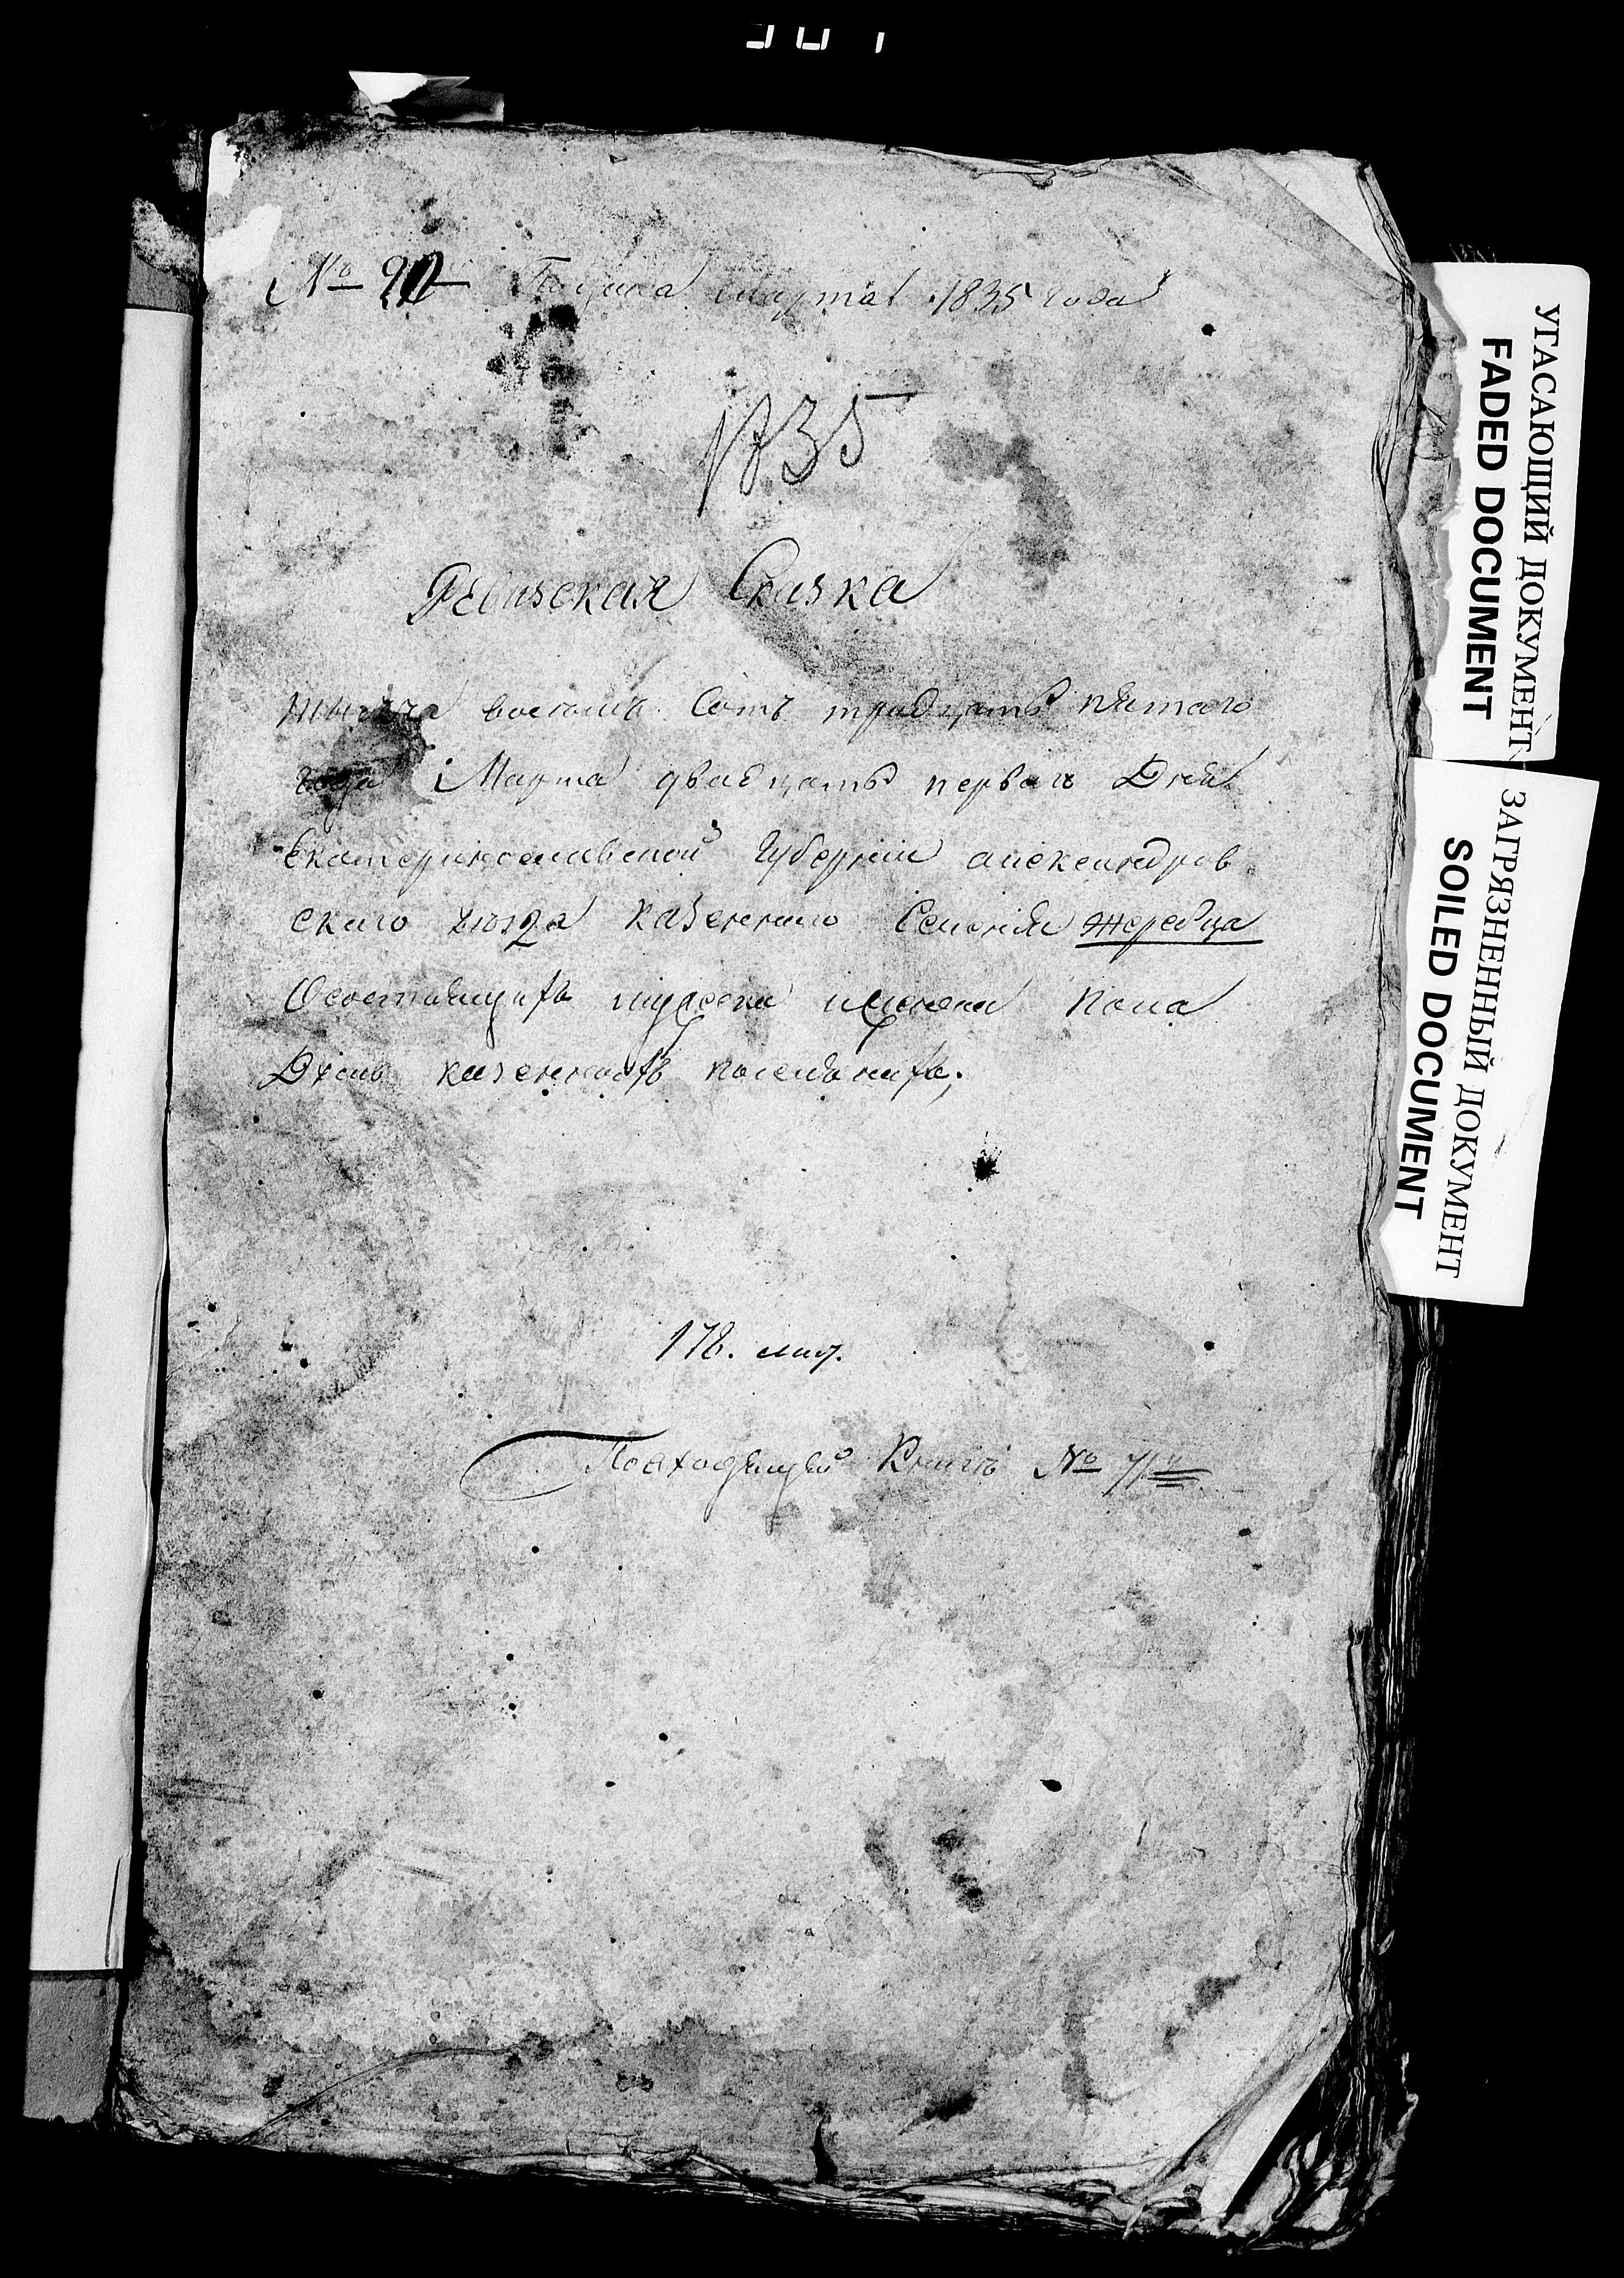 № 90 Получена Марта 1835 года
1835
Ревизская Сказка
тысяча восемь Сотъ тридцать пятаго
года Марта двадцать перваго Дня
Екатеринославской Губернии александров
скаго уезда казеннаго Селения жеребца
Осостоящихъ мужеска и женска пола
Душъ казенныхъ поселянъ;
178. лис.
Повходящей Книге №
УГАСАЮЩИЙ ДОКУМЕНТ
FADED DOCUMENT
ЗАГРЯЗНЕННЫЙ ДОКУМЕНТ
SOILED DOCUMENT